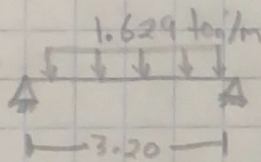 1.629 ton/m
3.20